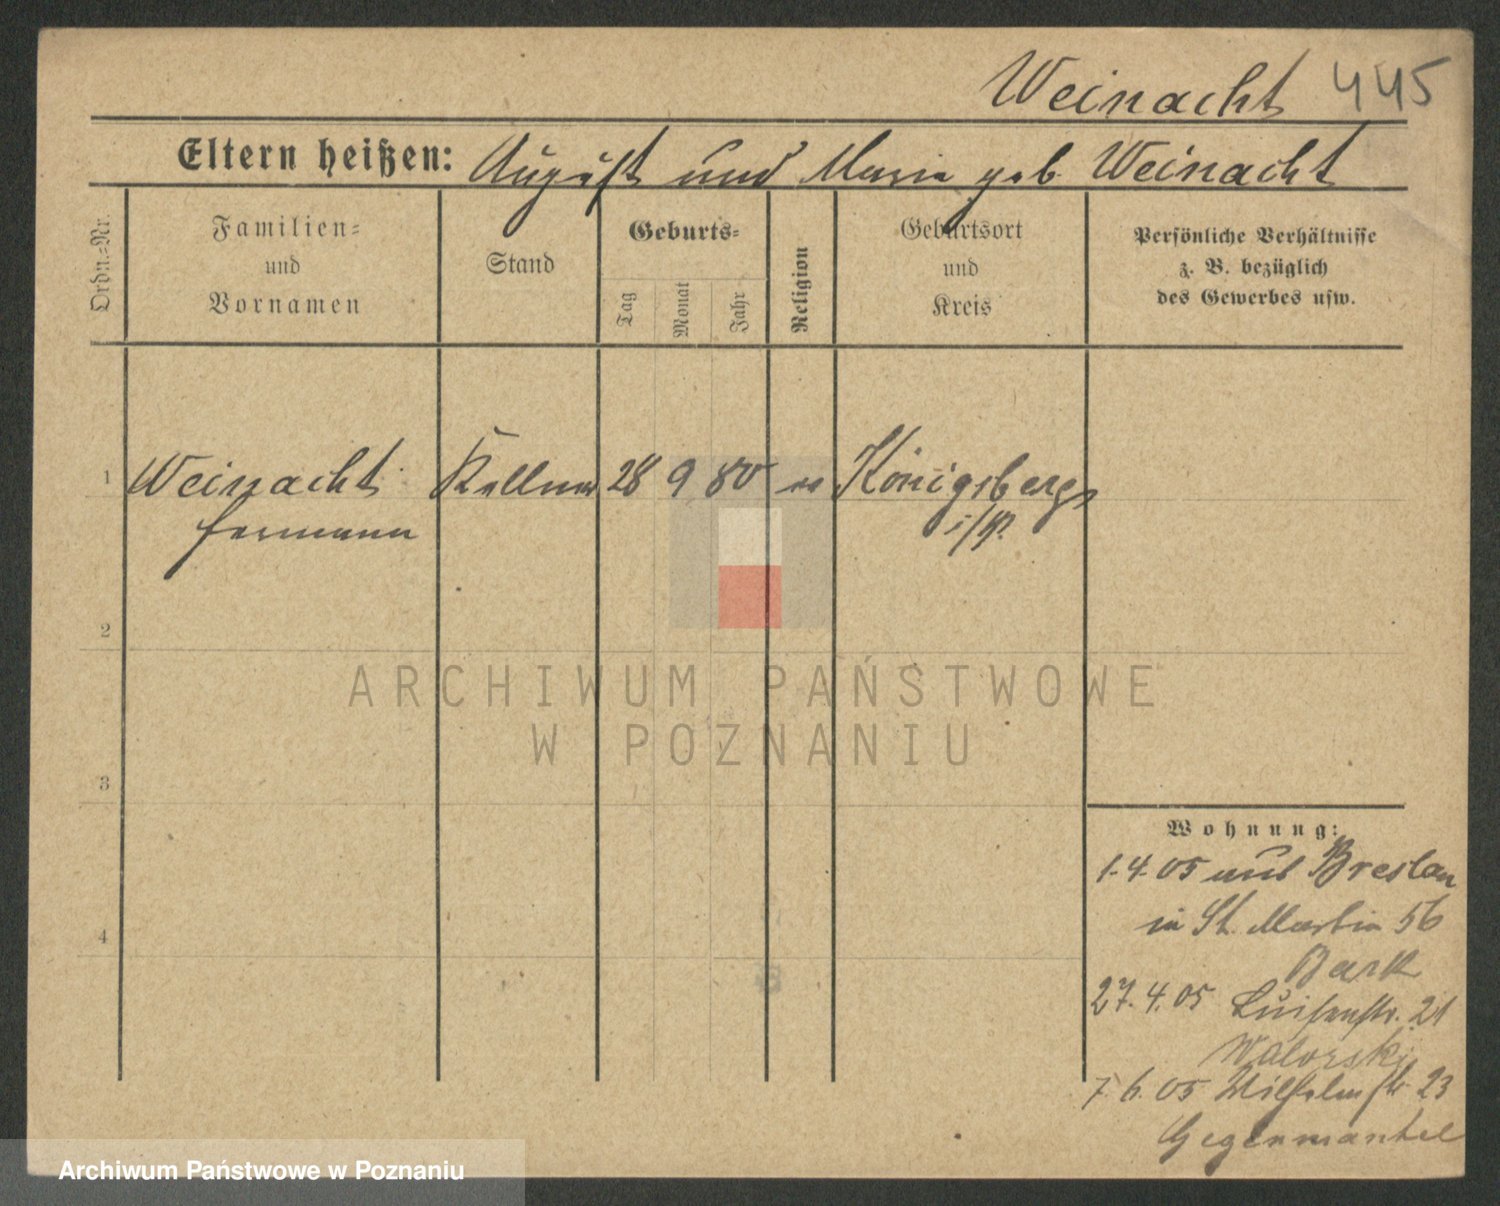 Weinacht 445
Eltern heißen: August und Marie geb. Weinacht
Ordn.-Nr.
Familien-
und
Vornamen
Stand
Geburts-
Tag
Monat
Jahr
Religion
Geburtsort
und
Kreis
Persönliche Verhältnisse
z. B. bezüglich
des Gewerbes usw.
1 Weinacht Kellner 28 9 80 ev Königsberg
Hermann i/P.
2
3
4
Wohnung:
1.4.05 aus Breslau
in St. Martin 56
Bark
27.4.05 Luisenstr. 21
Walorski
7.6.05 Wilhelmstr. 23
Gegenmantel
ARCHIWUM PAŃSTWOWE
W POZNANIU
Archiwum Państwowe w Poznaniu